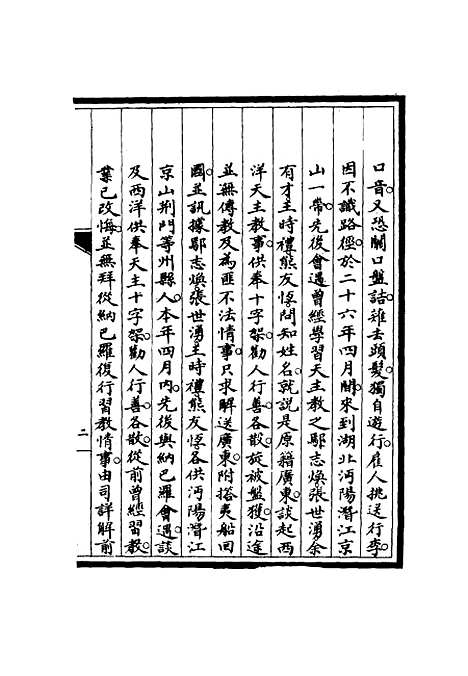 口音又恐關口盤詰薙去頭髮獨自遊行雇人挑送行李
因不識路徑於二十六年四月間來到湖北沔陽潛江京
山一帶先後會遇曾經學習天主教之鄢志煥張世湧余
有才王時禮熊友惇問知姓名就說是原籍廣東談起西
洋天主教事供奉十字架勸人行善各散旋被盤獲沿途
並無傳教及為匪不法情事只求解送廣東附搭夷船回
國並訊據鄢志煥張世湧王時禮熊友惇各供沔陽潛江
京山荆門等州縣人本年四月內先後與納巴羅會遇談
及西洋供奉天主十字架勸人行善各散從前曾經習教
業已改悔並無拜從納巴羅復行習教情事由司詳解前
二